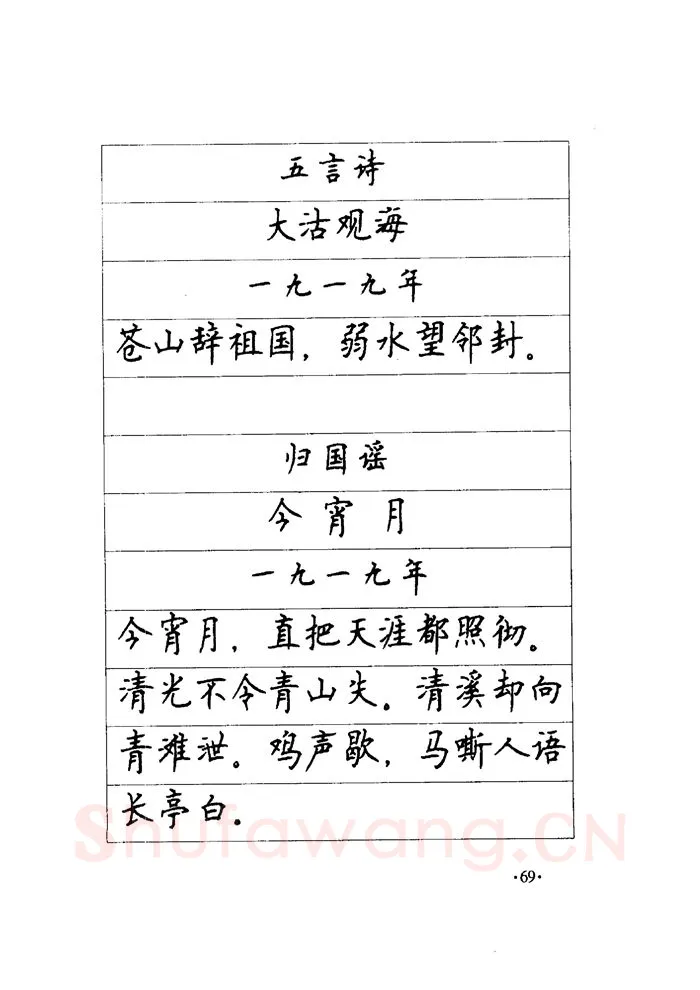 五言诗
大沽观海
一九一九年
苍山辞祖国，弱水望邻封。
归国谣
今宵月
一九一九年
今宵月，直把天涯都照彻。
清光不令青山失。清溪却向
青滩泄。鸡声歇，马嘶人语
长亭白。
Shufawang.CN
·69·